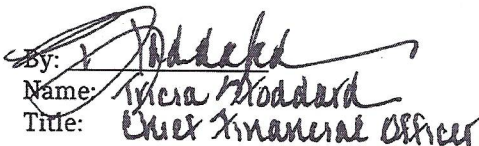 By: T Stoddard
Name: Tricia Stoddard
Title: Chief Financial Officer